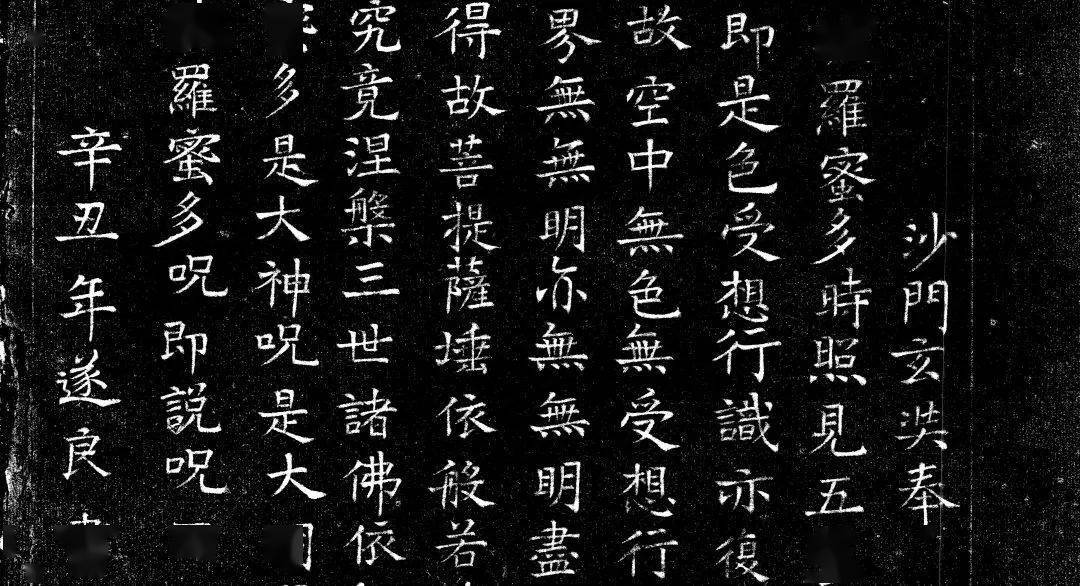 沙門玄奘奉
羅蜜多時照見五
即是色受想行識亦復
故空中無色無受想行
界無無明亦無無明盡
得故菩提薩埵依般若
究竟涅槃三世諸佛依
多是大神呪是大
羅蜜多呪即説呪
辛丑年遂良